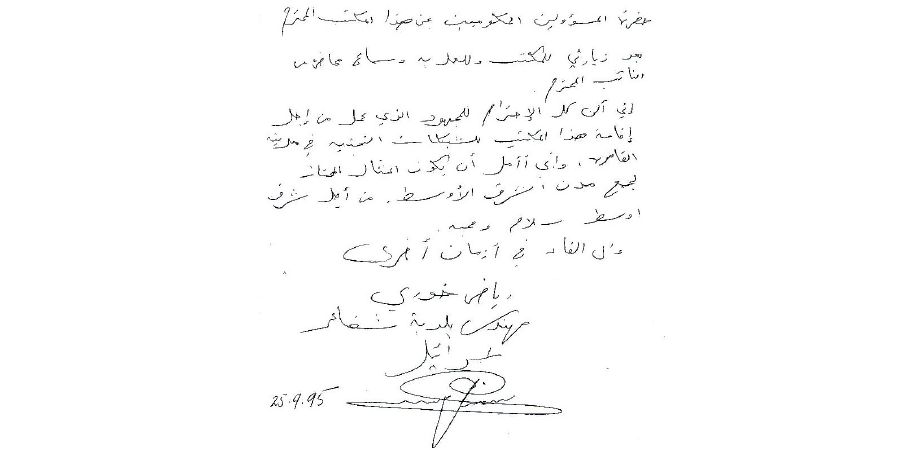 حضرة المسؤولين الحكوميين عن هذا المكتب المحترم
بعد زيارتي للمكتب وللبلدية وسماع محاضرة
النائب المحترم.
إني أكن كل الإحترام للمجهود الذي عمل من إجل
إقامة هذا المكتب للشبكات الفنية في مدينة
القاهرة، وإني أأمل أن يكون المثال الممتاز
لجميع مدن الشرق الأوسط. من أجل شرق
اوسط سلام ومحبه.
والى اللقاء في أزمان أخرى
رياض خوري
مهندس بلدية شفاعمرو
إسرائيل
25.9.95